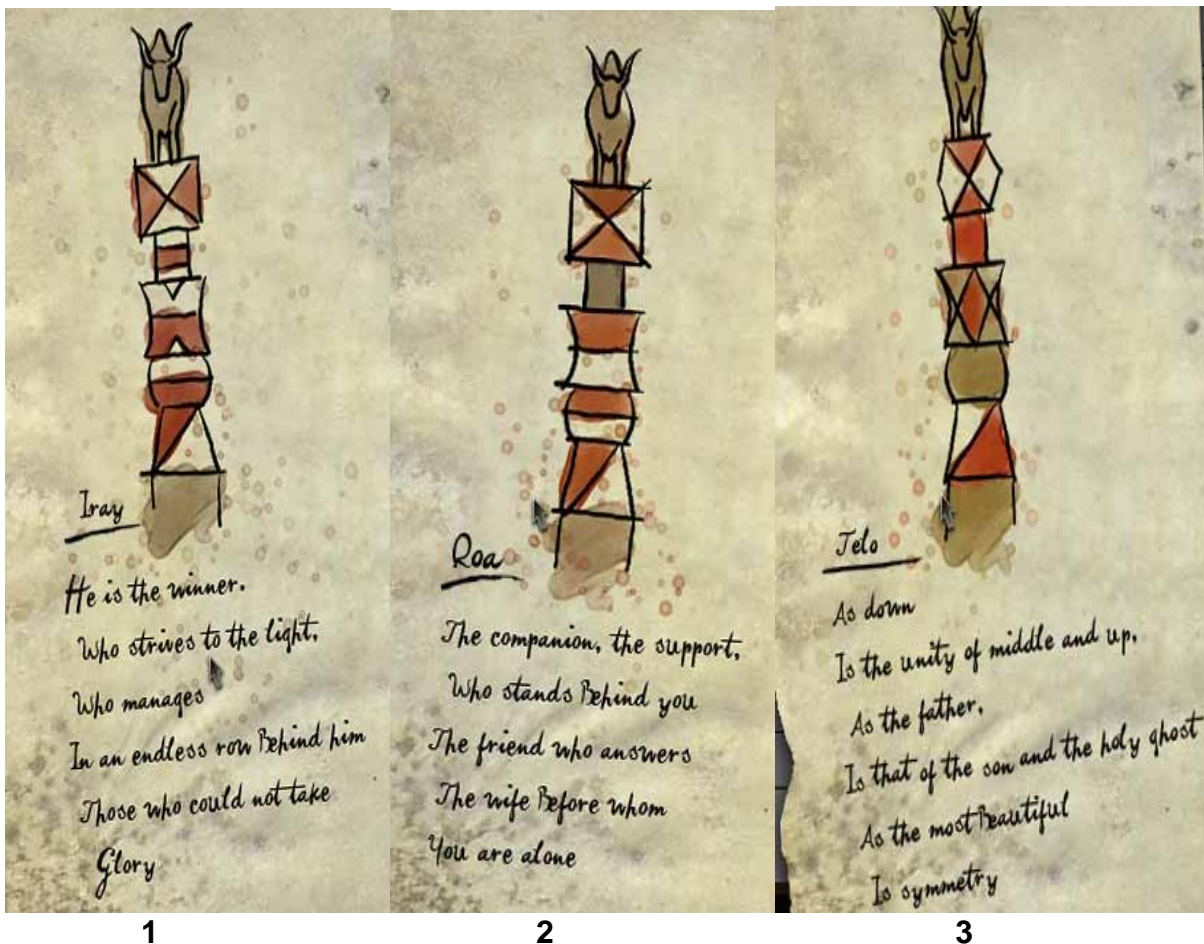 Iray
He is the winner.
Who strives to the light,
Who manages
In an endless row Behind him
Those who could not take
Glory
Roa
The companion, the support,
Who stands Behind you
The friend who answers
The wife Before whom
You are alone
Telo
As down
Is the unity of middle and up,
As the father,
Is that of the son and the holy ghost
As the most Beautiful
Is symmetry
1
2
3